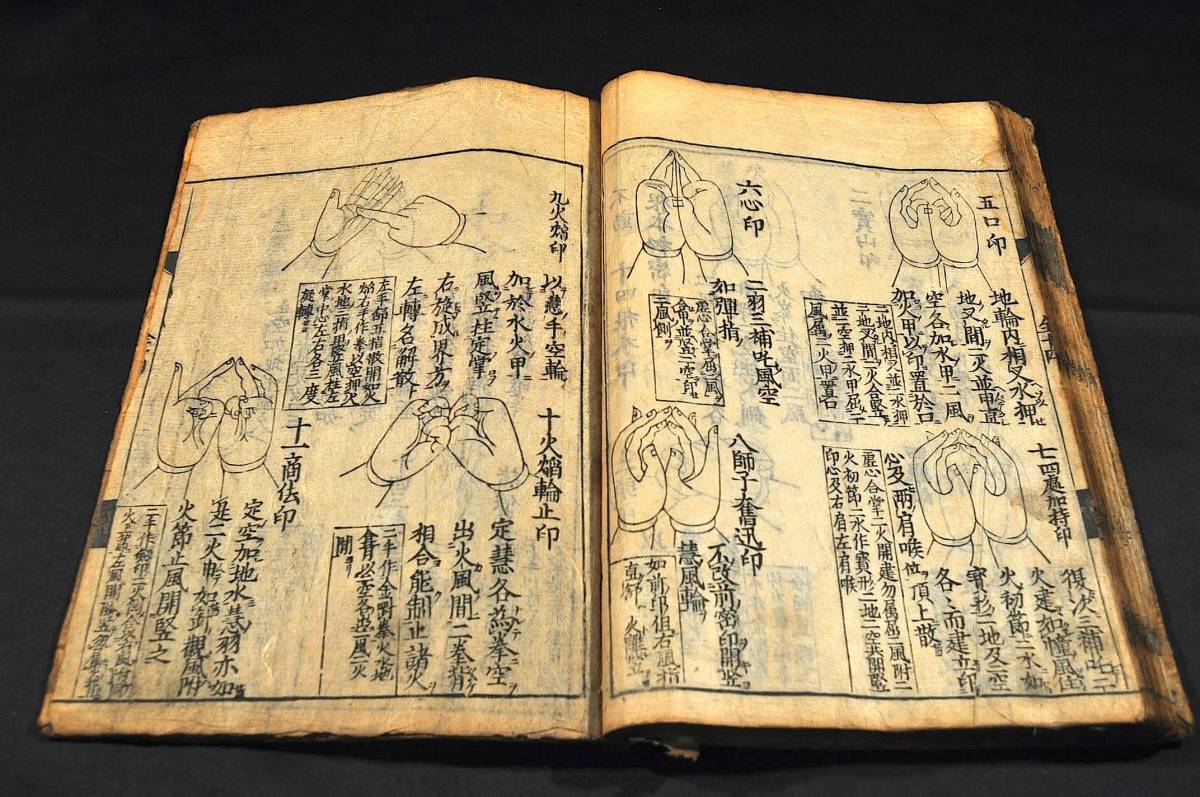 五口印
地輪内相叉水押
地叉間二火並申直
空各加水甲二風
加火甲以印置於口
二地内相叉並二水押
二地叉間二火合竪
並二空押二水甲屈二
風屬二火甲置口
七四處加持印
得次三補吒二
火建如幢風住
火初節二水如
寳形二地及空
各各而建立印
心及兩肩喉位頂上散
虚心合掌二火開建勿屬屈二風附二
火初節二水作寳形二地二空共開竪
印心及右肩左肩喉
六心印
二羽三補吒風空
如彈指
虚心合掌屈二風
並竪二空印
二風側
八師子奮迅印
不改前密印開竪
慧風輪
如前印但右風指
直舒
九火焔印
以慧手空輪
加於水火甲
風竪拄定掌
右旋成界方
左轉名解散
左手舒五指散開如火
焔右手作拳以空押火
水地三指甲竪風拄左
掌中心左右各三度
旋轉
十火焔輪止印
定慧各為拳空
出火風間二拳背
相合能制止諸火
二手作金剛拳火水地
拳背以空各出風火
間
十一商佉印
定空加地水慧羽亦如
是二火申如針觀風附
火節止風開竪之